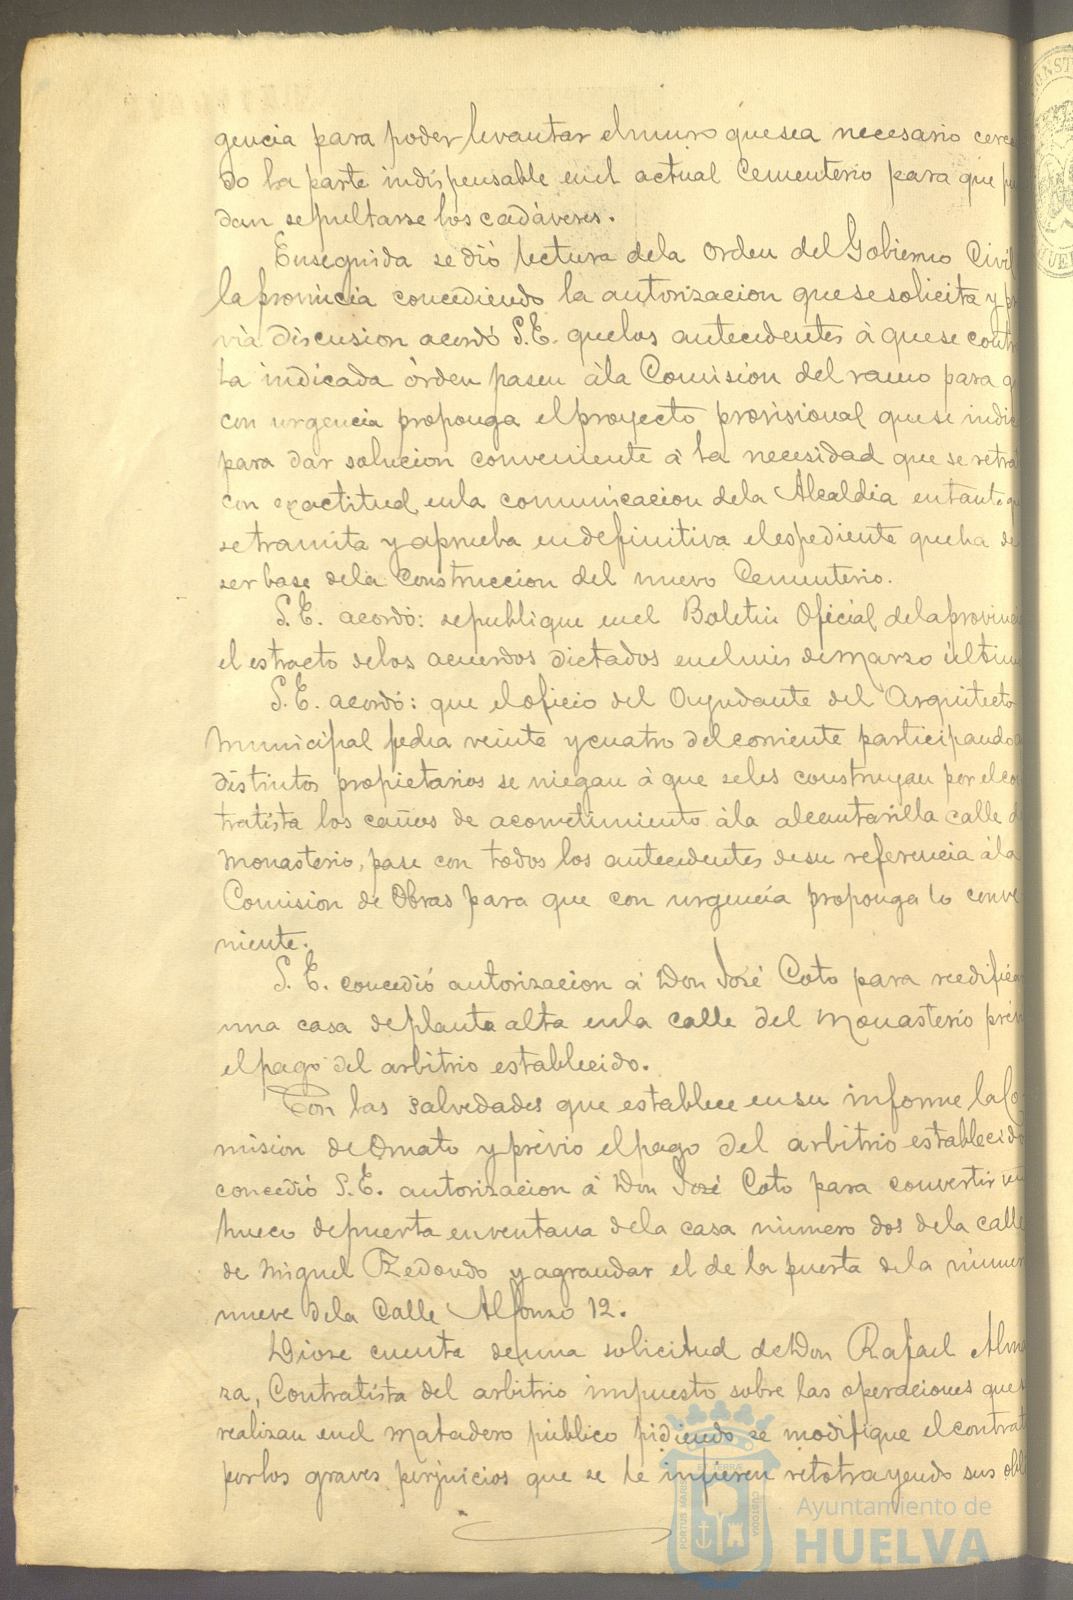 gencia para poder levantar el muro que sea necesario cerc
do la parte indispensable en el actual Cementerio para que pu
dan sepultarse los cadáveres.
Enseguida se dió lectura de la orden del Gobierno Civil
la provincia concediendo la autorizacion que se solicita y pr
via discusion acordó S.E. que los antecedentes á que se contr
la indicada órden pasen á la Comision del ramo para q
con urgencia proponga el proyecto provisional que se indic
para dar solucion conveniente á la necesidad que se retra
con exactitud en la comunicacion de la Alcaldia en tanto q
se tramita y aprueba en definitiva el espediente que ha de
ser base de la Construccion del nuevo Cementerio.
S.E. acordó: se publique en el Boletin Oficial de la provinci
el estracto de los acuerdos dictados en el mes de Marzo último
S.E. acordó: que el oficio del Ayudante del Arquitecto
Municipal fecha veinte y cuatro del corriente participando
distintos propietarios se niegan á que se les construyan por el co
tratista los caños de acometimiento á la alcantarilla calle d
Monasterio, pase con todos los antecedentes de su referencia á la
Comision de Obras para que con urgencia proponga lo conve
niente.
S.E. concedió autorizacion á Don José Coto para reedifica
una casa de planta alta en la calle del Monasterio prev
el pago del arbitrio establecido.
Con las salvedades que establece en su informe la Co
mision de Ornato y prévio el pago del arbitrio establecido
concedió S.E. autorizacion á Don José Coto para convertir un
hueco de puerta en ventana de la casa número dos de la calle
de Miguel Redondo y agrandar el de la puerta de la númer
nueve de la Calle Alfonso 12.
Diose cuenta de una solicitud de Don Rafael Alm
za, Contratista del arbitrio impuesto sobre las operaciones que s
realizan en el Matadero público pidiendo se modifique el contrat
por los graves perjuicios que se le infieren retotrayendo sus obli
PORTUS MARIS ET TERRÆ CUSTODIA
Ayuntamiento de
HUELVA